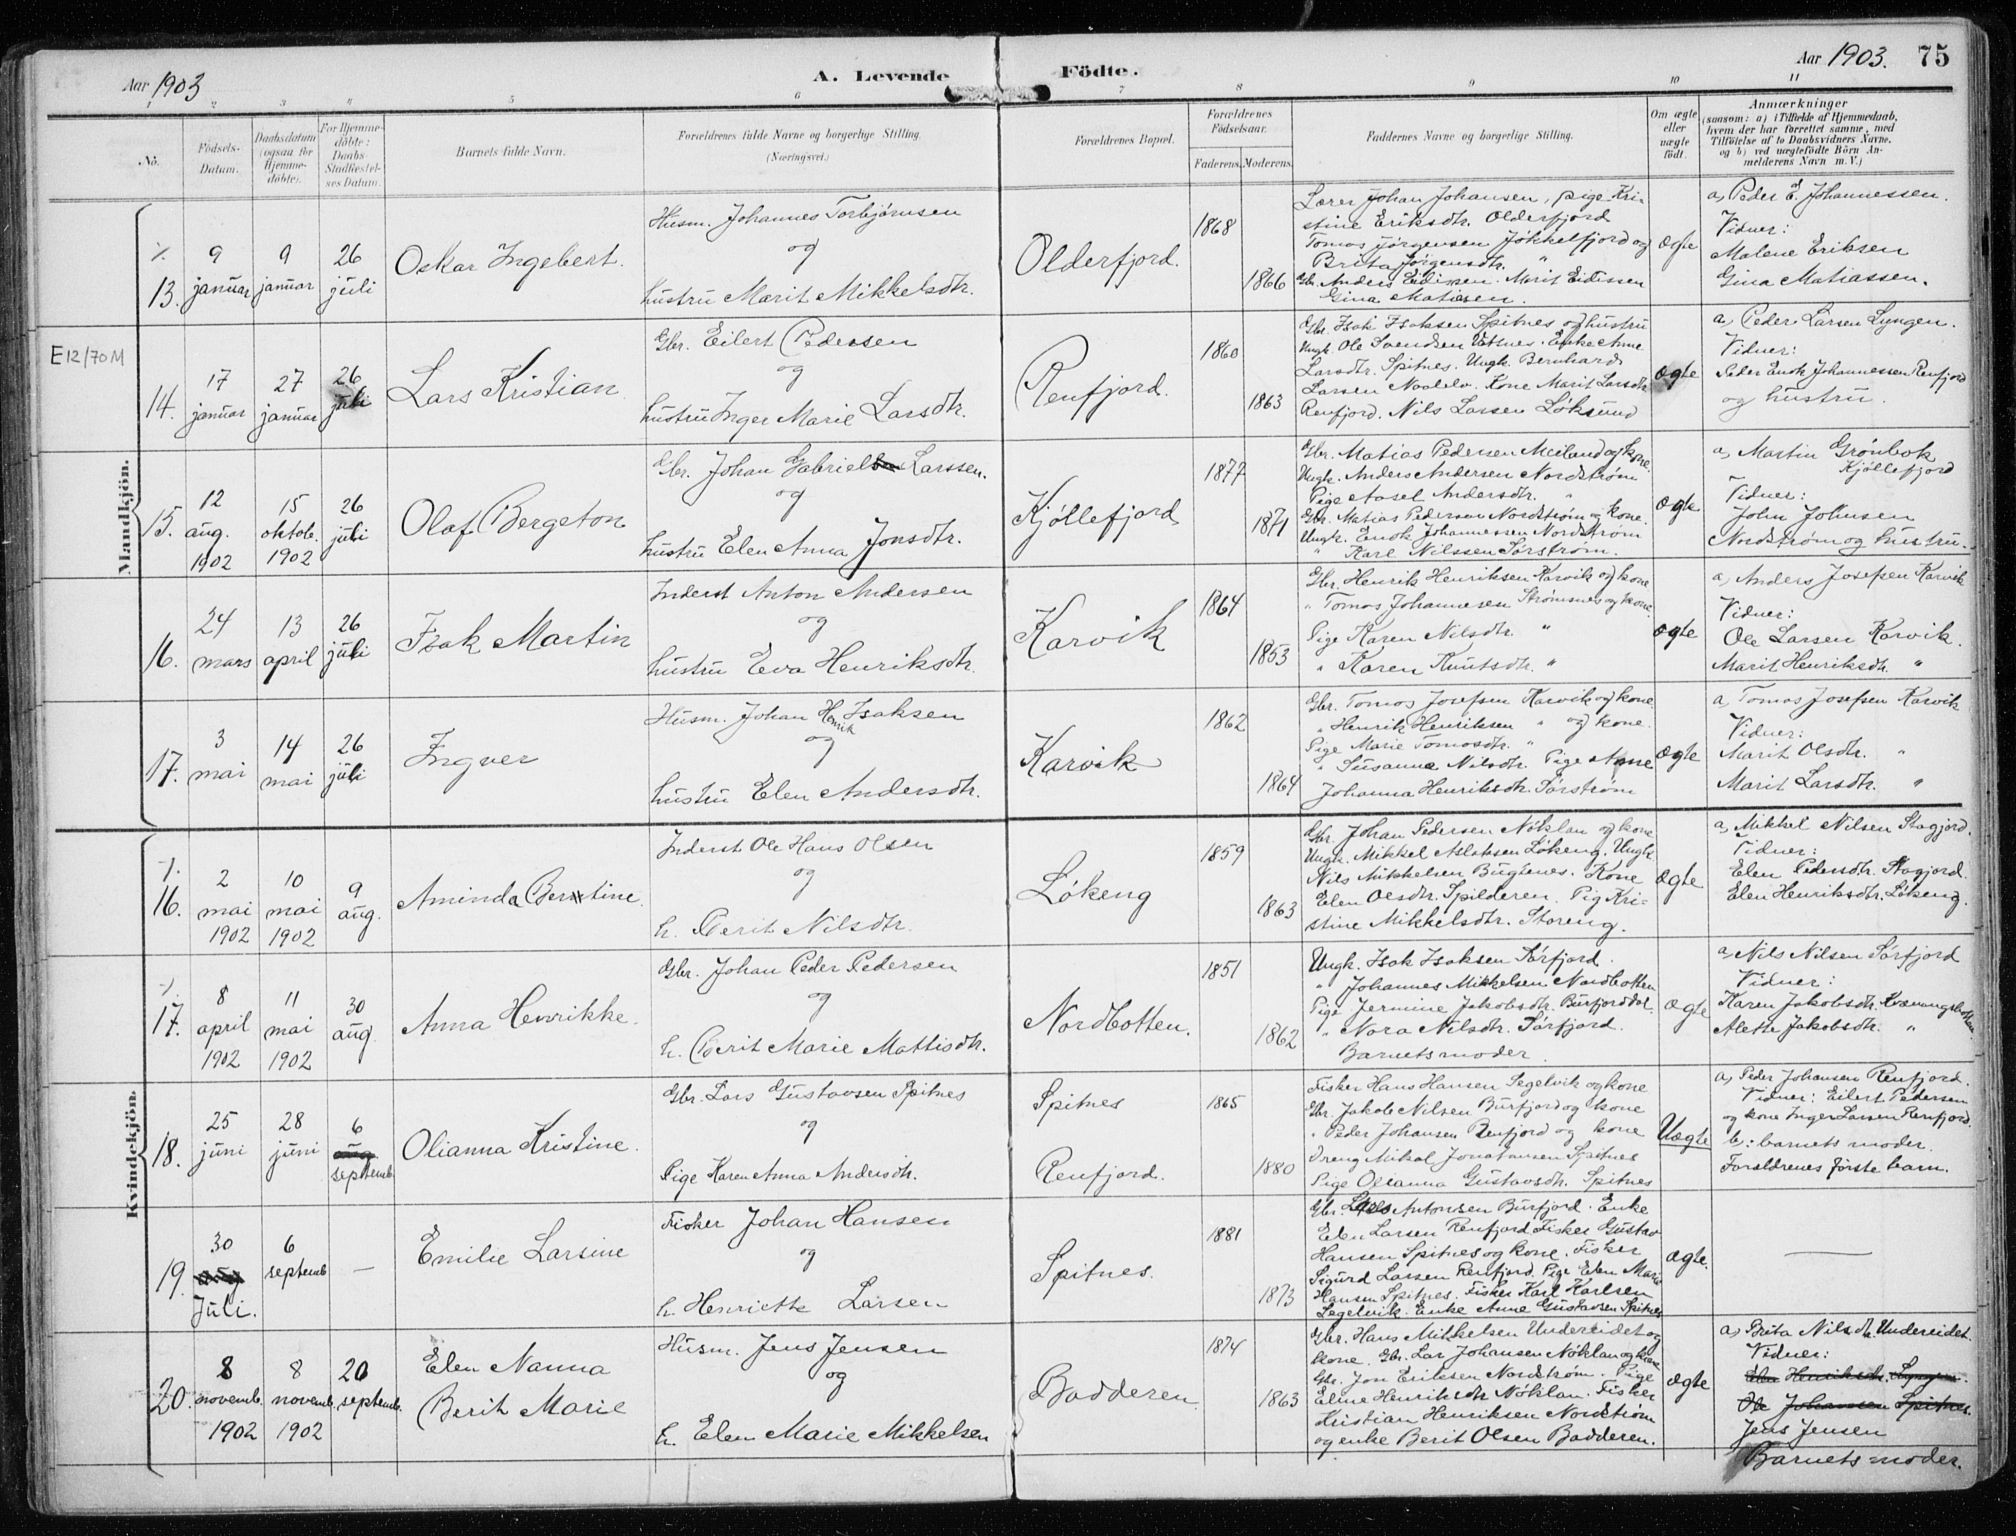 Aar 1903
A. Levende Födte.
Aar 1903. 75
1 2 3 4 5 6 7 8 9 10 11
No.
Födsels-
Datum.
Daabsdatum
(ogsaa for
Hjemme-
döbte).
For Hjemme-
döbte:
Daabs
Stadfæstel-
ses Datum.
Barnets fulde Navn.
Forældrenes fulde Navne og borgerlige Stilling.
(Næringsvei.)
Forældrenes Bopæl.
Forældrenes
Födselsaar.
Faderens. Moderens.
Faddernes Navne og borgerlige Stilling.
Om ægte
eller
uægte
födt.
Anmærkninger
(saasom: a) i Tilfælde af Hjemmedaab,
hvem der har forrettet samme, med
Tilföielse af to Daabsvidners Navne,
og b) ved uægtefödte Börn An-
melderens Navn m. V.)
Mandkjön.
13.
9
januar
9
januar
26
juli
Oskar Ingebert.
Husm. Johannes Torbjørnsen
og
hustru Marit Mikkelsdtr.
Olderfjord.
1868
1866
Lærer Johan Johansen, pige Kri-
stine Eriksdtr. Olderfjord
Tomas Jørgensen Jökkelfjord og
Brita Jørgensdtr. "
Gbr. Anders Eidissen. Marit Eidissen
Gina Matiesen.
ægte
a, Peder E. Johannessen.
Vidner:
Malene Eriksen
Gina Matiassen.
E12/70M
14.
17
januar
27
januar
26
juli
Lars Kristian
Gbr. Eilert Pedersen
og
hustru Inger Marie Larsdtr.
Renfjord.
1860
1863
Gbr. Isak Isaksen Spitnes og hustru
Ungk. Ole Svendsen Enke Anne
Larsdtr. Spitnes. Ungk. Bernhard
Larsen Kone Marit Larsdtr.
Renfjord. Nils Larsen Løksund
ægte
a, Peder Larsen Lyngen.
Vidner:
Peder Enok Johannessen Renfjord
og hustru.
15.
12
aug.
1902
15
oktob.
1902
26
juli
Olaf Bergeton
Gbr. Johan Gabriel Larssen.
og
hustru Elen Anna Jonsdtr.
Kjøllefjord
1877
1871
Gbr. Matias Pedersen Meiland og kone.
Ungk. Anders Andersen Nordstrøm
Pige Aasel Andersdtr. "
Gbr. Matias Pedersen Nordstrøm og kone.
Ungk. Enok Johannessen Nordstrøm
" Karl Nilssen Sørstrøm.
ægte
a, Martin Grønbok
Kjøllefjord
Vidner:
John Johnsen
Nordstrøm og hustru.
16.
24
mars
13
april
26
juli
Isak Martin
Inderst Anton Andersen
og
hustru Eva Henriksdtr.
Karvik
1864
1853
Gbr. Henrik Henriksen Karvik og kone
" Tomas Johannesen Strømsnes og kone.
Pige Karen Nilsdtr. "
" Karen Knutsdtr. "
ægte
a, Anders Josefsen Karvik
Vidner:
Ole Larsen Karvik.
Marit Henriksdtr. "
17.
3
mai
14
mai
26
juli
Ingver
Husm. Johan Henrik Isaksen
og
hustru Elen Andersdtr.
Karvik
1862
1864
Gbr. Tomas Josefsen Karvik og kone
" Henrik Henriksen " og kone.
Pige Marie Tomasdtr. "
" Susanne Nilsdtr. Pige Anne
Johanna Henriksdtr. Sørstrøm
ægte
a, Tomas Josefsen Karvik
Vidner:
Marit Olsdtr. "
Marit Larsdtr. "
Kvindekjön.
16.
2
mai
1902
10
mai
1902
9
aug.
Aminda Berntine
Inderst Ole Hans Olsen
og
h. Berit Nilsdtr.
Løkeng
1859
1863
Gbr. Johan Pedersen Nöklan og kone
Ungk. Mikkel Aslaksen Løkeng. Ungk.
Nils Mikkelsen Bugtenes. Kone
Elen Olsdtr. Spilderen. Pig Kri-
stine Mikkelsdtr. Storeng.
ægte
a, Mikkel Nilsen Stagjord.
Vidner:
Elen Pedersdtr. Stagjord.
Elen Henriksdtr. Løkeng.
17.
8
april
1902
11
mai
1902
30
aug.
Anna Henrikke.
Gbr. Johan Peder Pedersen
og
h. Berit Marie Mattisdtr.
Nordbotten.
1851
1862
Ungk. Isak Isaksen Sørfjord.
" Johannes Mikkelsen Nordbotten
Pige Jermine Jakobsdtr. Burfjorddal.
" Nora Nilsdtr. Sørfjord.
Barnets moder.
ægte
a, Nils Nilsen Sørfjord
Vidner:
Karen Jakobsdtr. Kvænangsbotten
Alette Jakobsdtr. "
18.
25
juni
28
juni
6
aug
septemb.
Olianna Kristine.
Gbr. Lars Gustavsen Spitnes
og
Pige Karen Anna Andersdtr.
Spitnes
Renfjord.
1865
1880
Fisker Hans Hansen Segelvik og kone
Gbr. Jakob Nilsen Burfjord og kone
" Peder Johansen Renfjord og kone
Dreng Mikal Jonatansen Spitnes
Pige Oleanna Gustavsdtr. Spitnes
Uægte
a, Peder Johansen Renfjord.
Vidner: Eilert Pedersen
og kone Inger Larsen Renfjord.
b: barnets moder.
Forældrenes første barn.
19.
30
aug
Juli.
6
septemb.
—
Emilie Larsine
Fisker Johan Hansen
og
h. Henriette Larsen
Spitnes.
1881
1873
Gbr. Antonsen Burfjord. Enke
Elen Larsen Renfjord. Fisker Gustav
Hansen Spitnes og kone. Fisker
Sigurd Larsen Renfjord. Pige Elen Marie
Hansen Spitnes. Fisker Karl Karlsen
Segelvik. Enke Anne Gustavsen Spitnes
ægte.
20.
8
novemb.
1902
8
novemb.
1902
20
septemb.
Elen Nanna
Berit Marie
Husm. Jens Jensen
og
h. Elen Marie Mikkelsen
Badderen.
1874
1863
Gbr. Hans Mikkelsen Undereidet og
kone. Gbr. Lars Johansen Nöklan og kone
Gbr. Jon Eriksen Nordstrøm. Pige
Eline Henriksdtr Nöklan. Fisker
Kristian Henriksen Nordstrøm
og enke Berit Olsen Badderen.
ægte
a, Brita Nilsdtr. Undereidet.
Vidner:
Elen Henriksdtr.
Ole Johansen Spitnes.
Jens Jensen
Barnets moder.